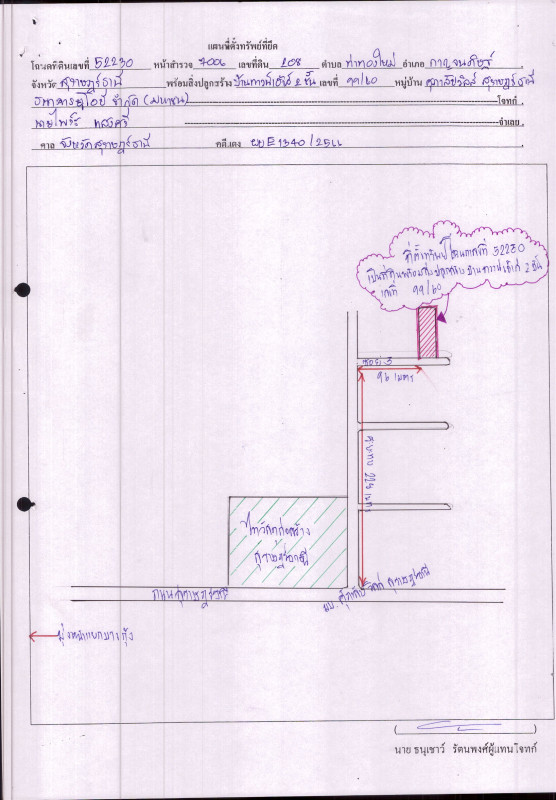 แผนที่ตั้งทรัพย์ที่ยึด
โฉนดที่ดินเลขที่ 52230 หน้าสำรวจ 7006 เลขที่ดิน 208 ตำบล ท่าทองใหม่ อำเภอ กาญจนดิษฐ์
จังหวัด สุราษฎร์ธานี พร้อมสิ่งปลูกสร้าง บ้านทาวน์เฮ้าส์ 2 ชั้น เลขที่ 99/60 หมู่บ้าน ศุภาลัยวิลล์ สุราษฎร์ธานี
ธนาคารยูโอบี จำกัด (มหาชน) โจทก์
นายไพรัช จำเลย
ศาล จังหวัดสุราษฎร์ธานี คดีแดง ผบE1340/2566
ที่ตั้งทรัพย์โฉนดเลขที่ 52230
เป็นที่ดินพร้อมสิ่งปลูกสร้าง บ้านทาวน์เฮ้าส์ 2 ชั้น
เลขที่ 99/60
ซอย 5
96 เมตร
เมตร
ไทวัสดุก่อสร้าง
สุราษฎร์ธานี
ถนน
มบ. ศุภาลัย วิลล์ สุราษฎร์ธานี
มุ่งหน้าแยกบางกุ้ง
นาย ธนุเชาว์ รัตนพงศ์ผู้แทนโจทก์